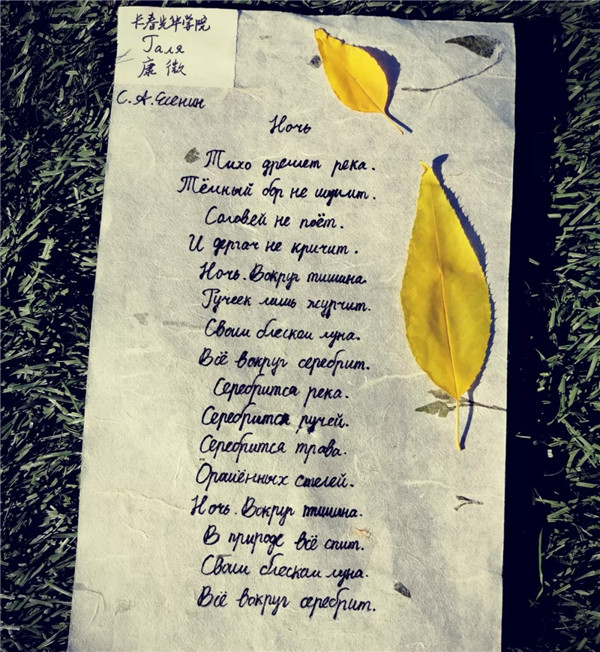 长春光华学院
Галя
康微
С. А. Есенин
Ночь
Тихо дремлет река.
Тёмный бор не шумит.
Соловей не поёт.
И дергач не кричит.
Ночь. Вокруг тишина.
Ручеек лишь журчит.
Своим блеском луна.
Всё вокруг серебрит.
Серебрится река.
Серебрится ручей.
Серебрится трава.
Орошённых степей.
Ночь. Вокруг тишина.
В природе всё спит.
Своим блеском луна.
Всё вокруг серебрит.